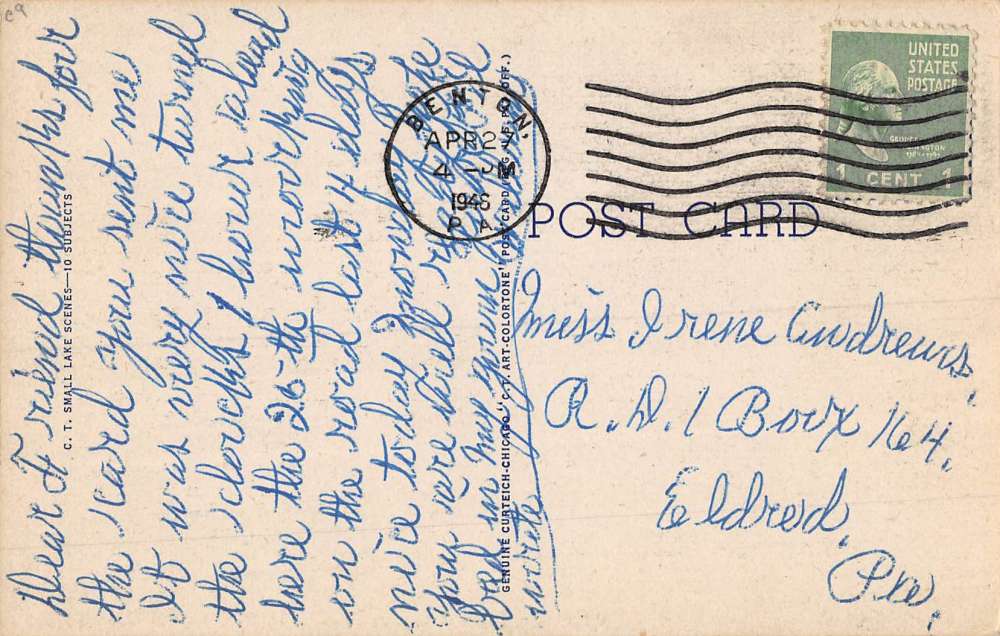 c9
Dear Friend thanks for
the card you sent me
it was very nice turned
the clocks 1 hour ahead
here the 26th working
on the road last 4 days
nice today Monday
you
bad in
write
C. T. SMALL LAKE SCENES—10 SUBJECTS
GENUINE CURTEICH-CHICAGO "C. T. ART-COLORTONE" POST CARD (REG. U.S. PAT. OFF.)
BENTON.
APR 27
4 - PM
1948
PA
UNITED
STATES
POSTAGE
GEORGE
WASHINGTON
1 CENT 1
POST CARD
Miss Irene Andrews.
R. D. 1 Box 164.
Eldred.
Pa.